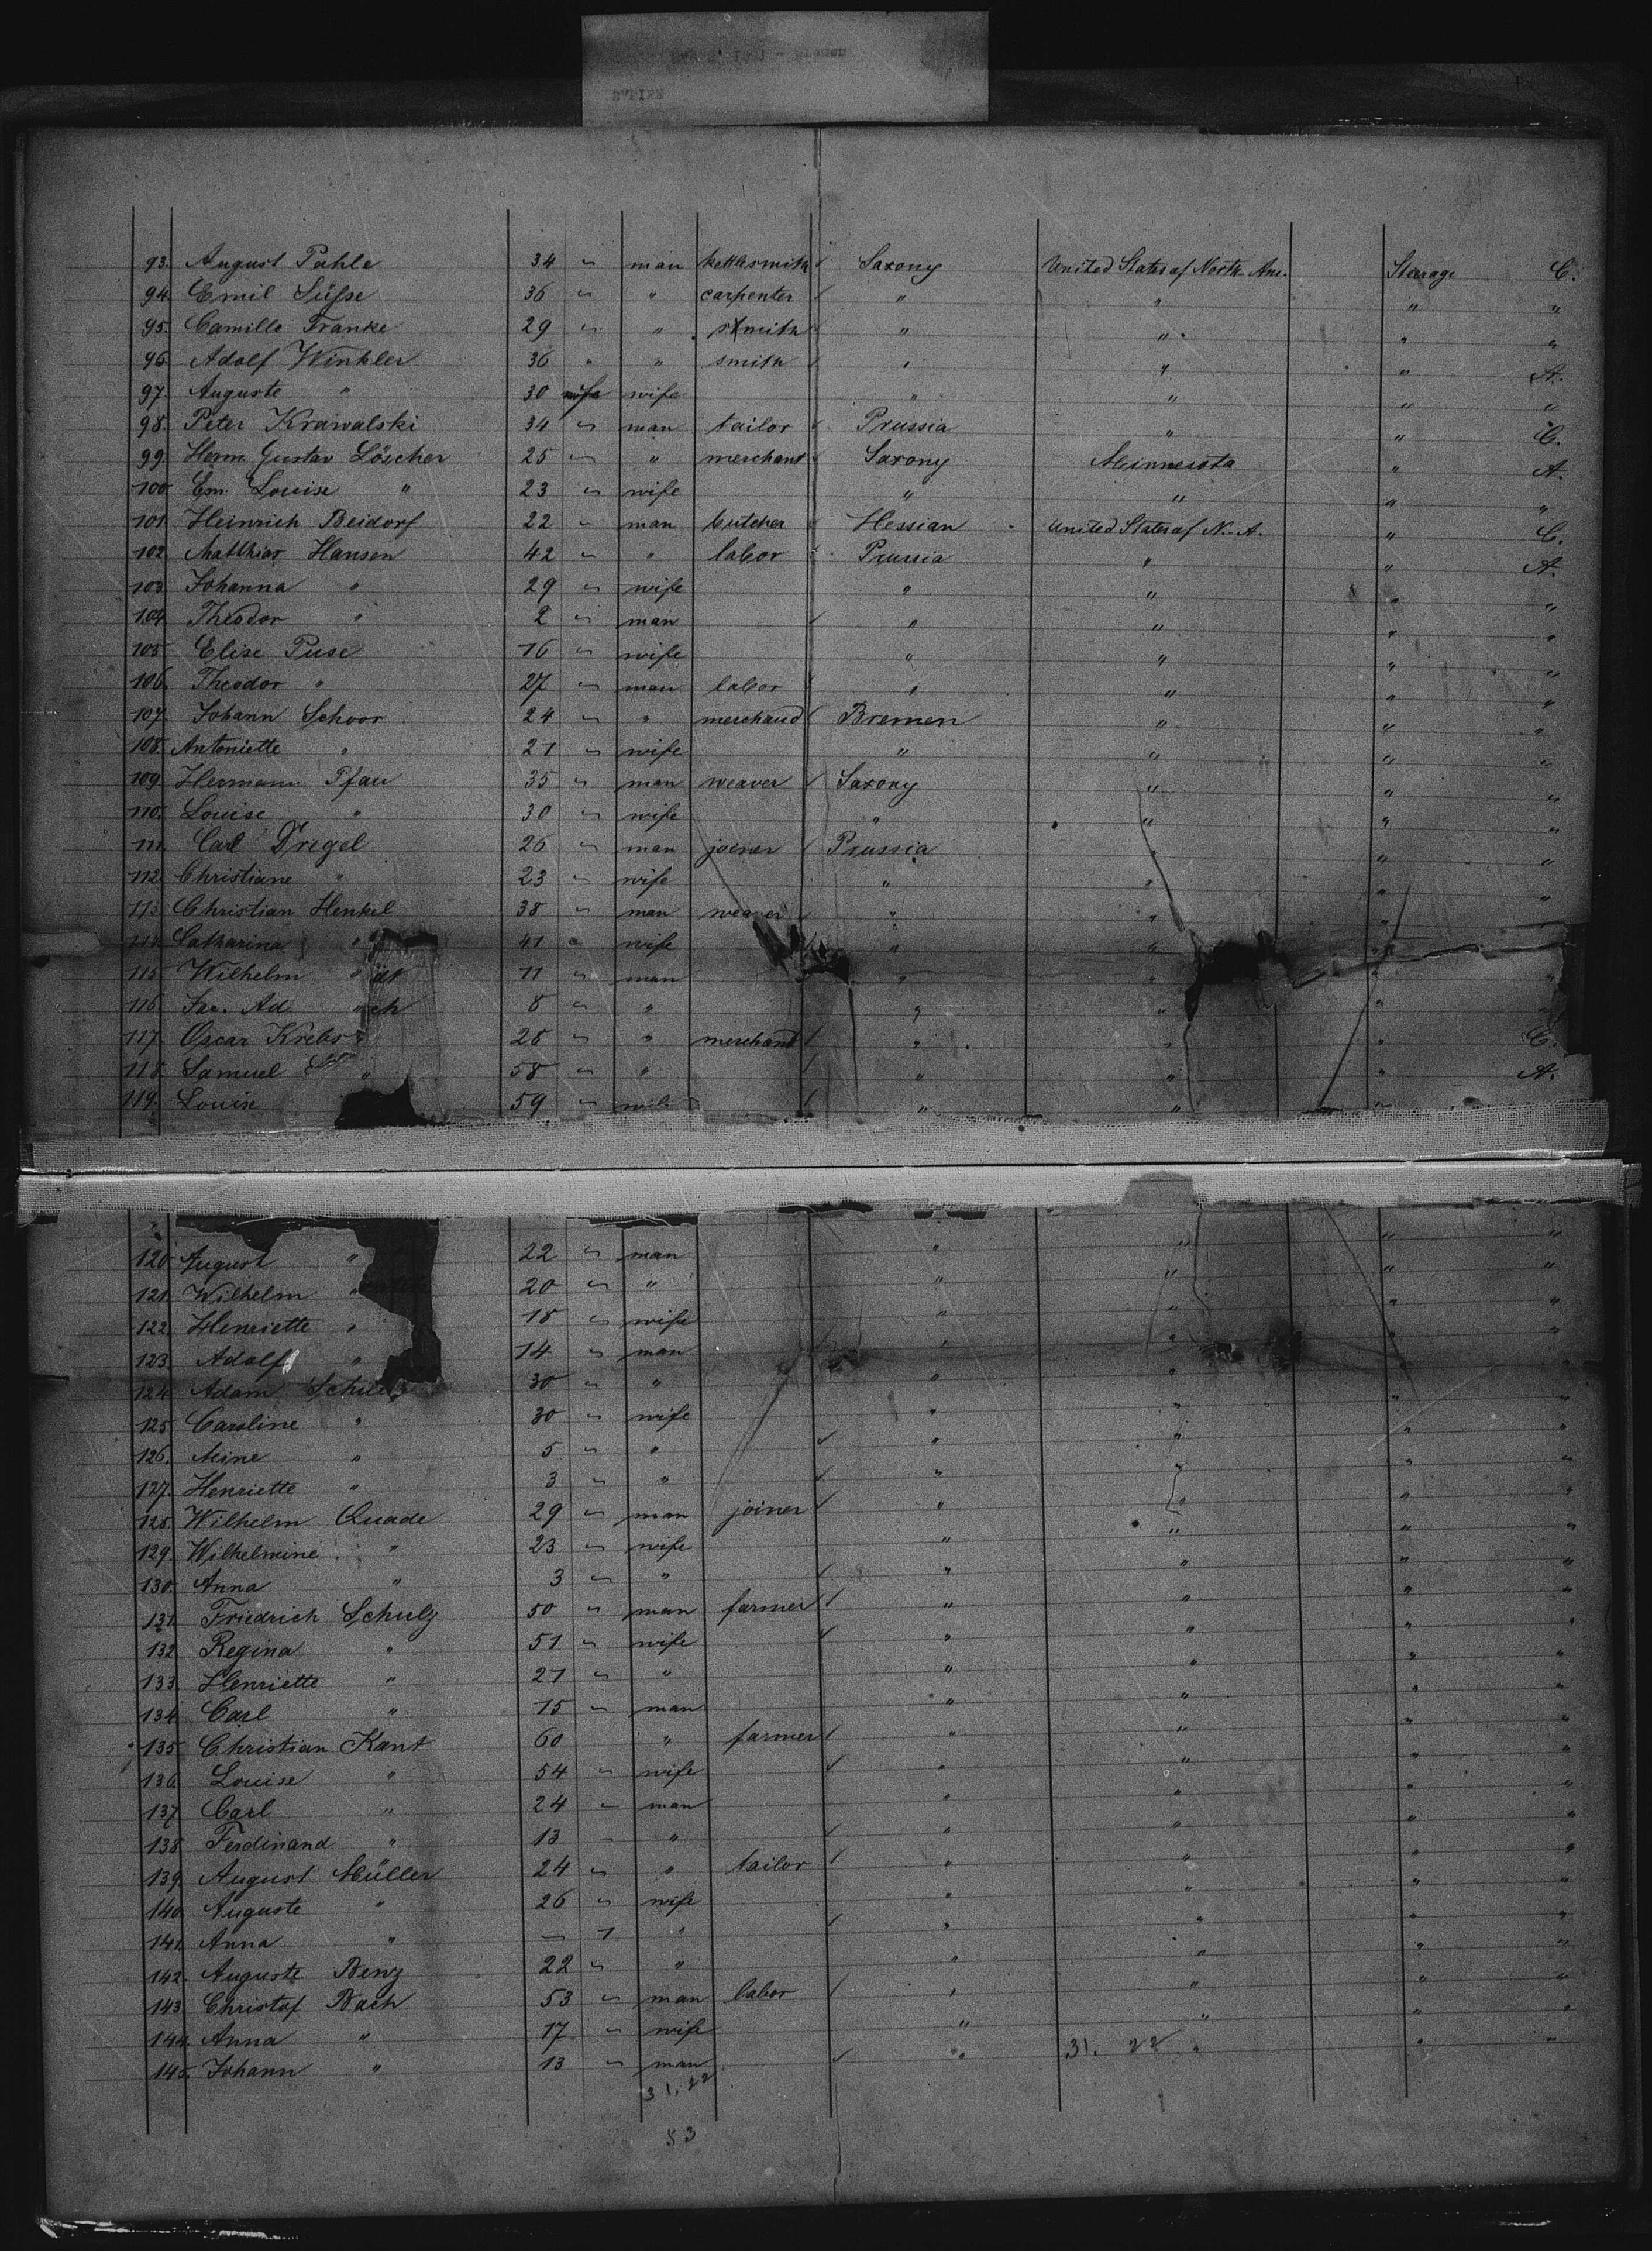 93. August Pahle 34 " man kettlesmith Saxony United States of North Am. Steerage C.
94. Emil Süſse 36 " " carpenter " " " "
95. Camillo Franke 29 " " smith " " " "
96. Adolf Winkler 36 " " smith " " " A.
97. Auguste " 30 wife " " " "
98. Peter Krawalski 34 " man tailor Prussia " " C.
99. Herm. Gustav Löscher 25 " " merchant Saxony Minnesota " A.
100. Em. Louise " 23 " wife " " " "
101. Heinrich Beidorf 22 " man butcher Hessian United States of N. A. " C.
102. Matthias Hansen 42 " " labor Prussia " " A.
103. Johanna " 29 " wife " " " "
104. Theodor " 2 " man " " " "
105. Elise Puse 16 " wife " " " "
106. Theodor " 27 " man labor " " " "
107. Johann Schoor 24 " " merchand Bremen " " "
108. Antoniette " 21 " wife " " " "
109. Hermann Pfau 35 " man weaver Saxony " " "
110. Louise " 30 " wife " " " "
111. Carl 26 " man joiner Prussia " " "
112. Christiane " 23 " wife " " " "
113. Christian Henkel 38 " man weaver " " " "
114. Catharina " 41 " wife " " " "
115. Wilhelm " 11 " man " " " "
116. Jac. Ad. " 8 " " " " "
117. Oscar Krebs 28 " " merchand " " " C.
118. Samuel 58 " " " " " A.
119. Louise 59 " wife " " "
120. August " 22 " man " " " "
121. Wilhelm " 20 " " " " " "
122. Henriette " 18 " wife " " " "
123. Adolf " 14 " man " " " "
124. Adam 30 " " " " "
125. Caroline " 30 " wife " " " "
126. Mine " 5 " " " " " "
127. Henriette " 3 " " " " " "
128. Wilhelm Quade 29 " man joiner " " " "
129. Wilhelmine " 23 " wife " " " "
130. Anna " 3 " " " " " "
131. Friedrich Schulz 50 " man farmer " " " "
132. Regina " 51 " wife " " " "
133. Henriette " 21 " " " " " "
134. Carl " 15 " man " " " "
135. Christian Kant 60 " farmer " " " "
136. Louise " 54 " wife " " " "
137. Carl " 24 " man " " " "
138. Ferdinand " 13 " " " " " "
139. August Müller 24 " " tailor " " " "
140. Auguste " 26 " wife " " " "
141. Anna " – 1 " " " " "
142. Auguste Benz 22 " " " " " "
143. Christof Bach 53 " man labor " " " "
144. Anna " 17 " wife " " " "
145. Johann " 13 " man " 31. 22 " " "
31. 22
53